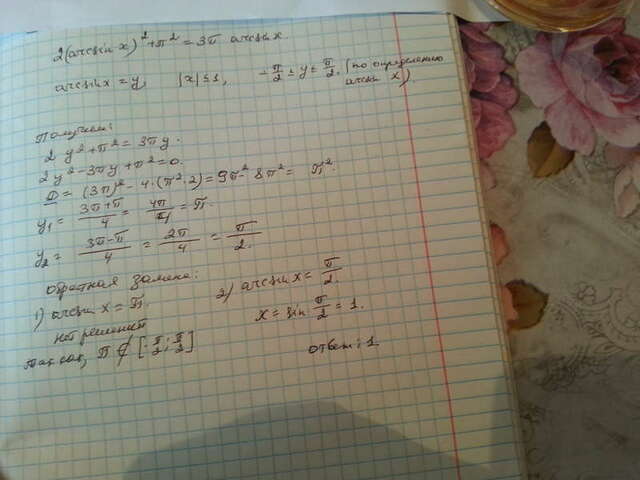 2(arcsin x)² + π² = 3π arcsin x
arcsin x = y, |x| ≤ 1, -π/2 ≤ y ≤ π/2. (по определению
arcsin x)
Получим:
2y² + π² = 3πy.
2y² - 3πy + π² = 0.
D = (3π)² - 4·(π²·2) = 9π² - 8π² = π².
y₁ = (3π+π)/4 = 4π/4 = π.
y₂ = (3π-π)/4 = 2π/4 = π/2.
обратная замена:
1) arcsin x = π,
нет решений
так как, π ∉ [-π/2; π/2]
2) arcsin x = π/2.
x = sin π/2 = 1.
ответ: 1